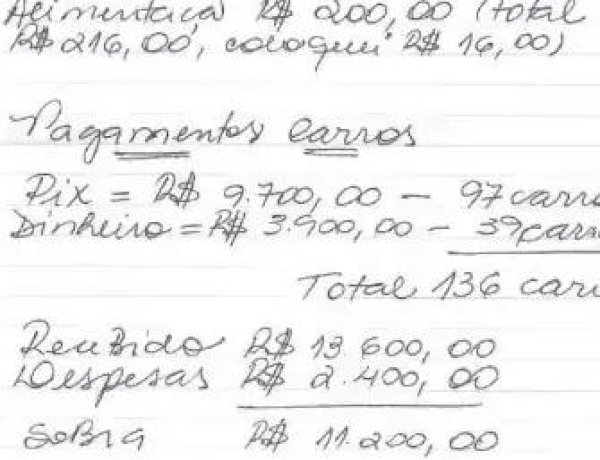 Alimentaçã R$ 200,00 (total
R$ 216,00, coloquei R$ 16,00)
Pagamentos Carros
Pix = R$ 9.700,00 - 97 carro
Dinheiro = R$ 3.900,00 - 39 carr
Total 136 carr
Recebido R$ 13.600,00
Despesas R$ 2.400,00
Sobra R$ 11.200,00